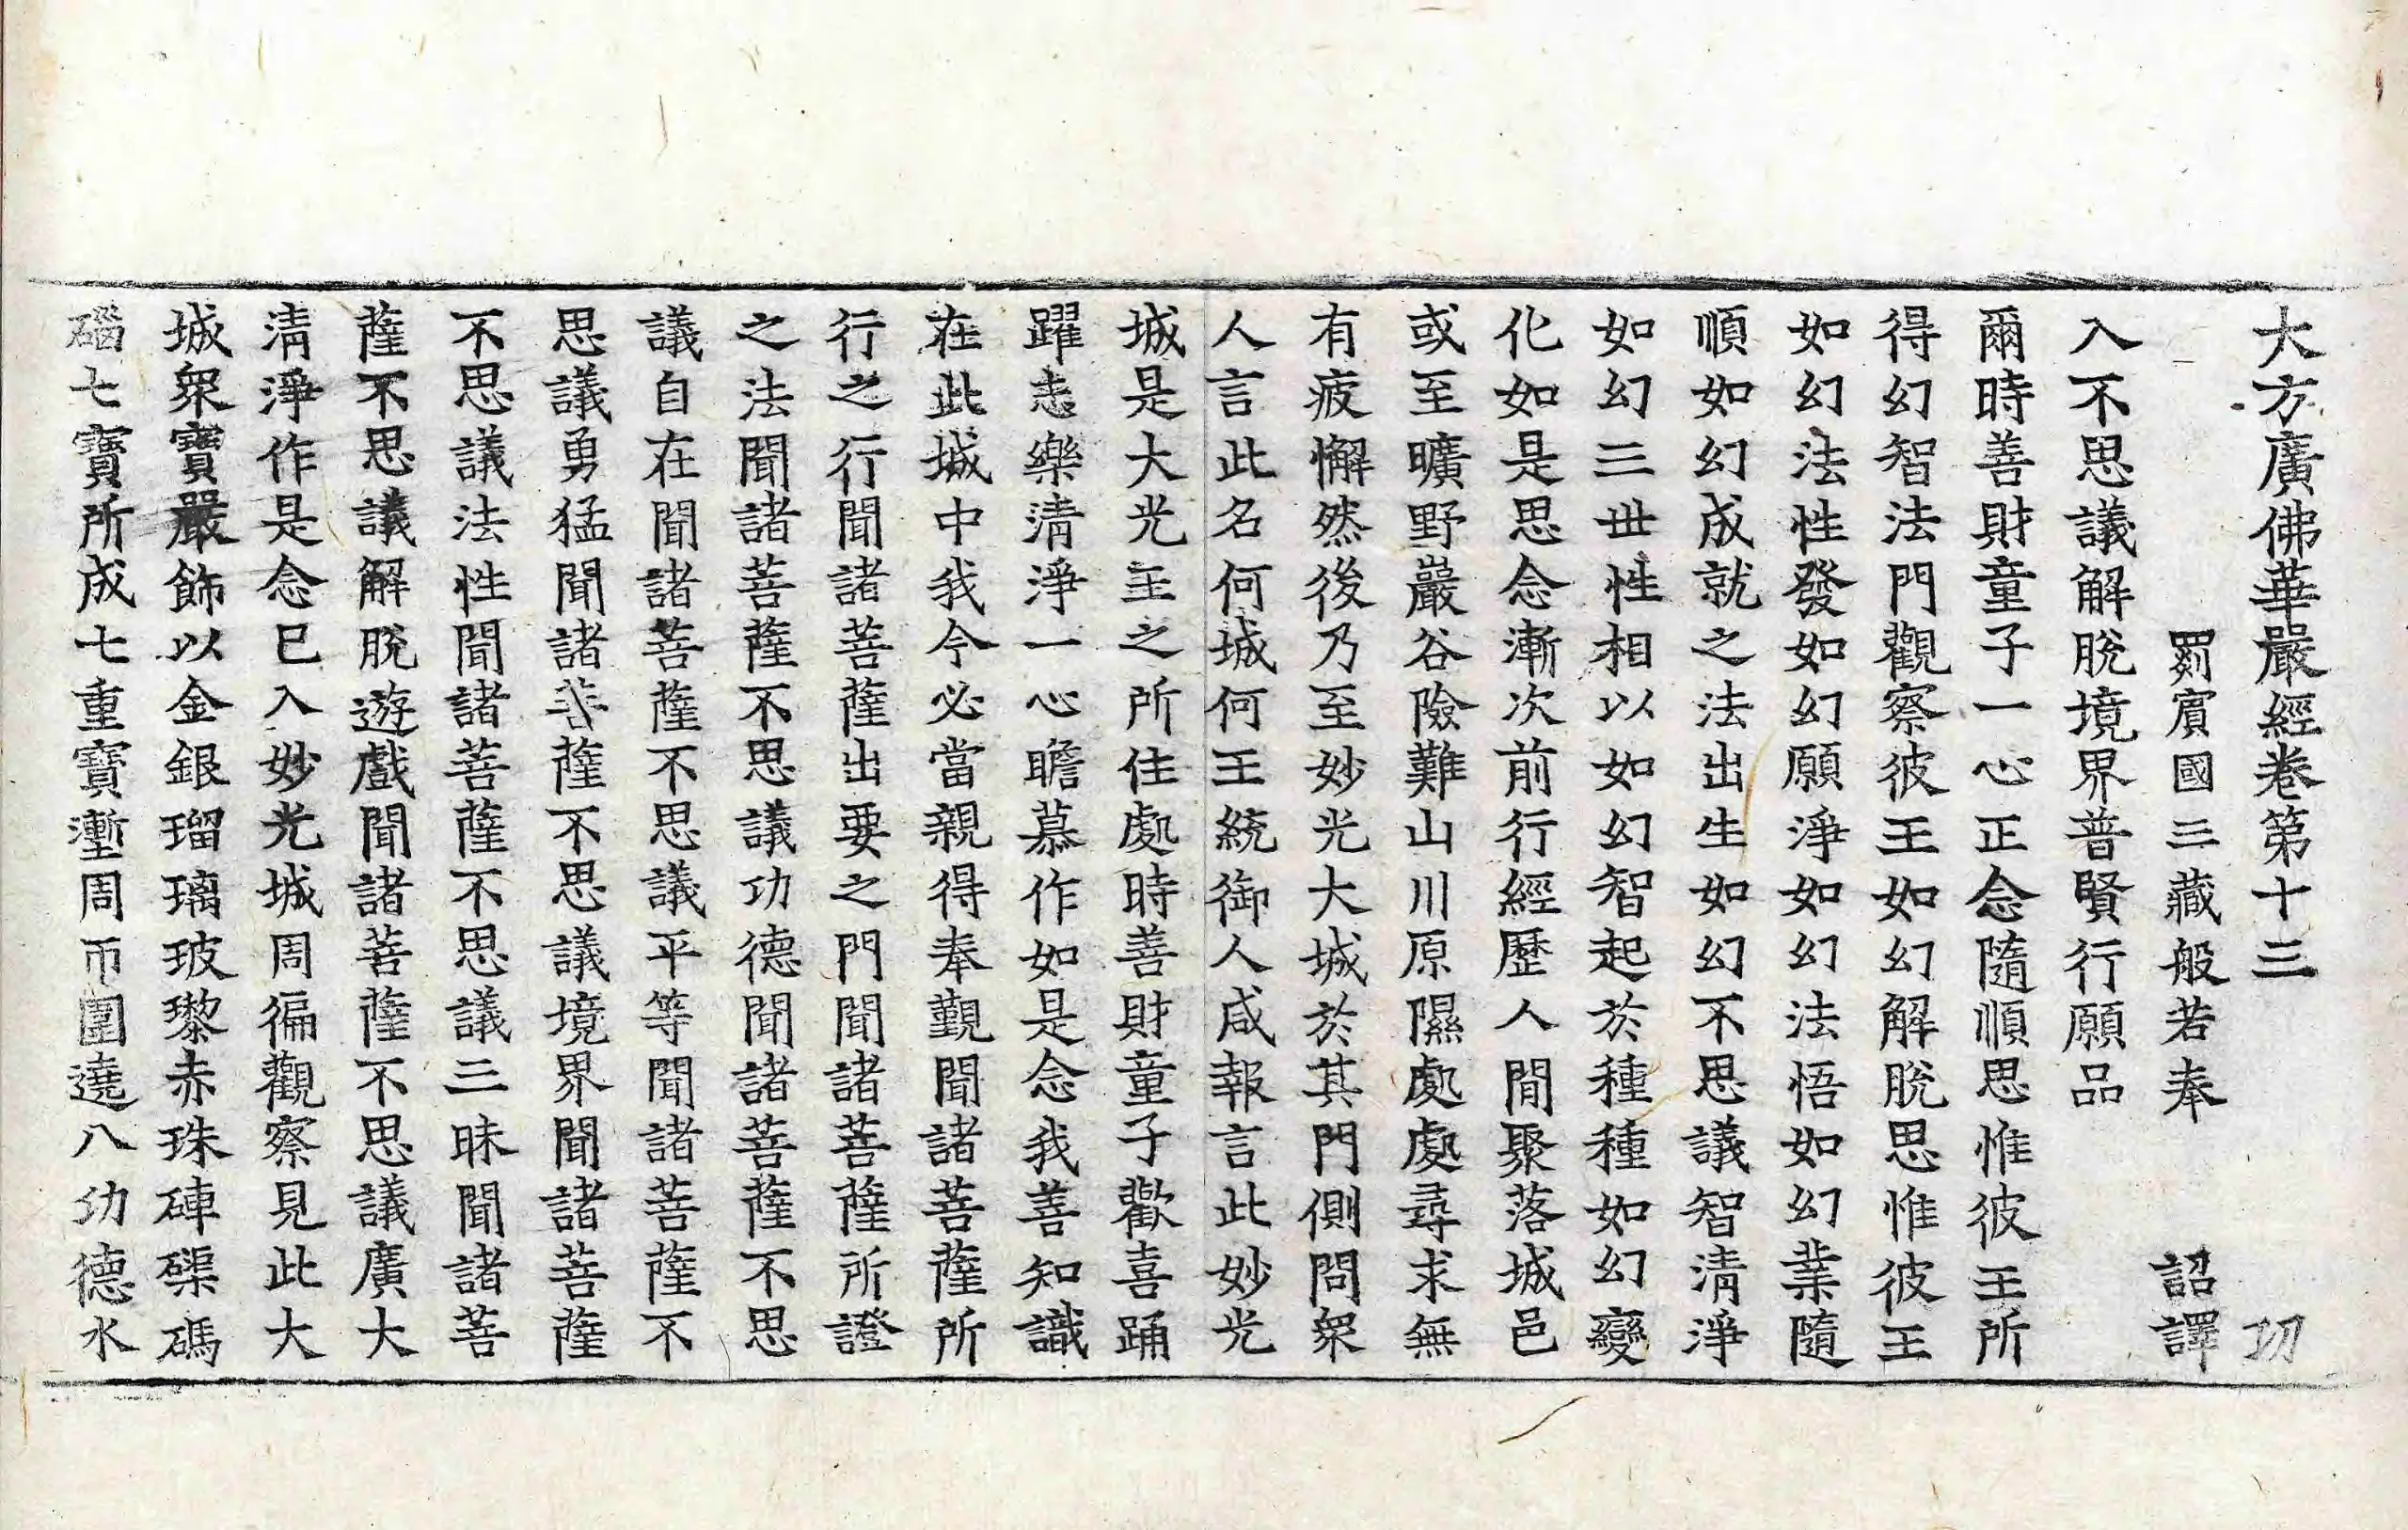 大方廣佛華嚴經卷第十三 功
罽賔國三藏般若奉 詔譯
入不思議解脫境界普賢行願品
爾時善財童子一心正念隨順思惟彼王所
得幻智法門觀察彼王如幻解脫思惟彼王
如幻法性發如幻願淨如幻法悟如幻業隨
順如幻成就之法出生如幻不思議智清淨
如幻三世性相以如幻智起於種種如幻變
化如是思念漸次前行經歷人間聚落城邑
或至曠野巖谷險難山川原隰處處尋求無
有疲懈然後乃至妙光大城於其門側問衆
人言此名何城何王統御人咸報言此妙光
城是大光王之所住處時善財童子歡喜踊
躍恚樂清淨一心瞻慕作如是念我善知識
在此城中我今必當親得奉覲聞諸菩薩所
行之行聞諸菩薩出要之門聞諸菩薩所證
之法聞諸菩薩不思議功德聞諸菩薩不思
議自在聞諸菩薩不思議平等聞諸菩薩不
思議勇猛聞諸菩薩不思議境界聞諸菩薩
不思議法性聞諸菩薩不思議三昧聞諸菩
薩不思議解脫遊戲聞諸菩薩不思議廣大
清淨作是念已入妙光城周徧觀察見此大
城衆寶嚴飾以金銀瑠璃玻瓈赤珠硨磲碼
碯七寶所成七重寶壍周帀圍遶八功德水